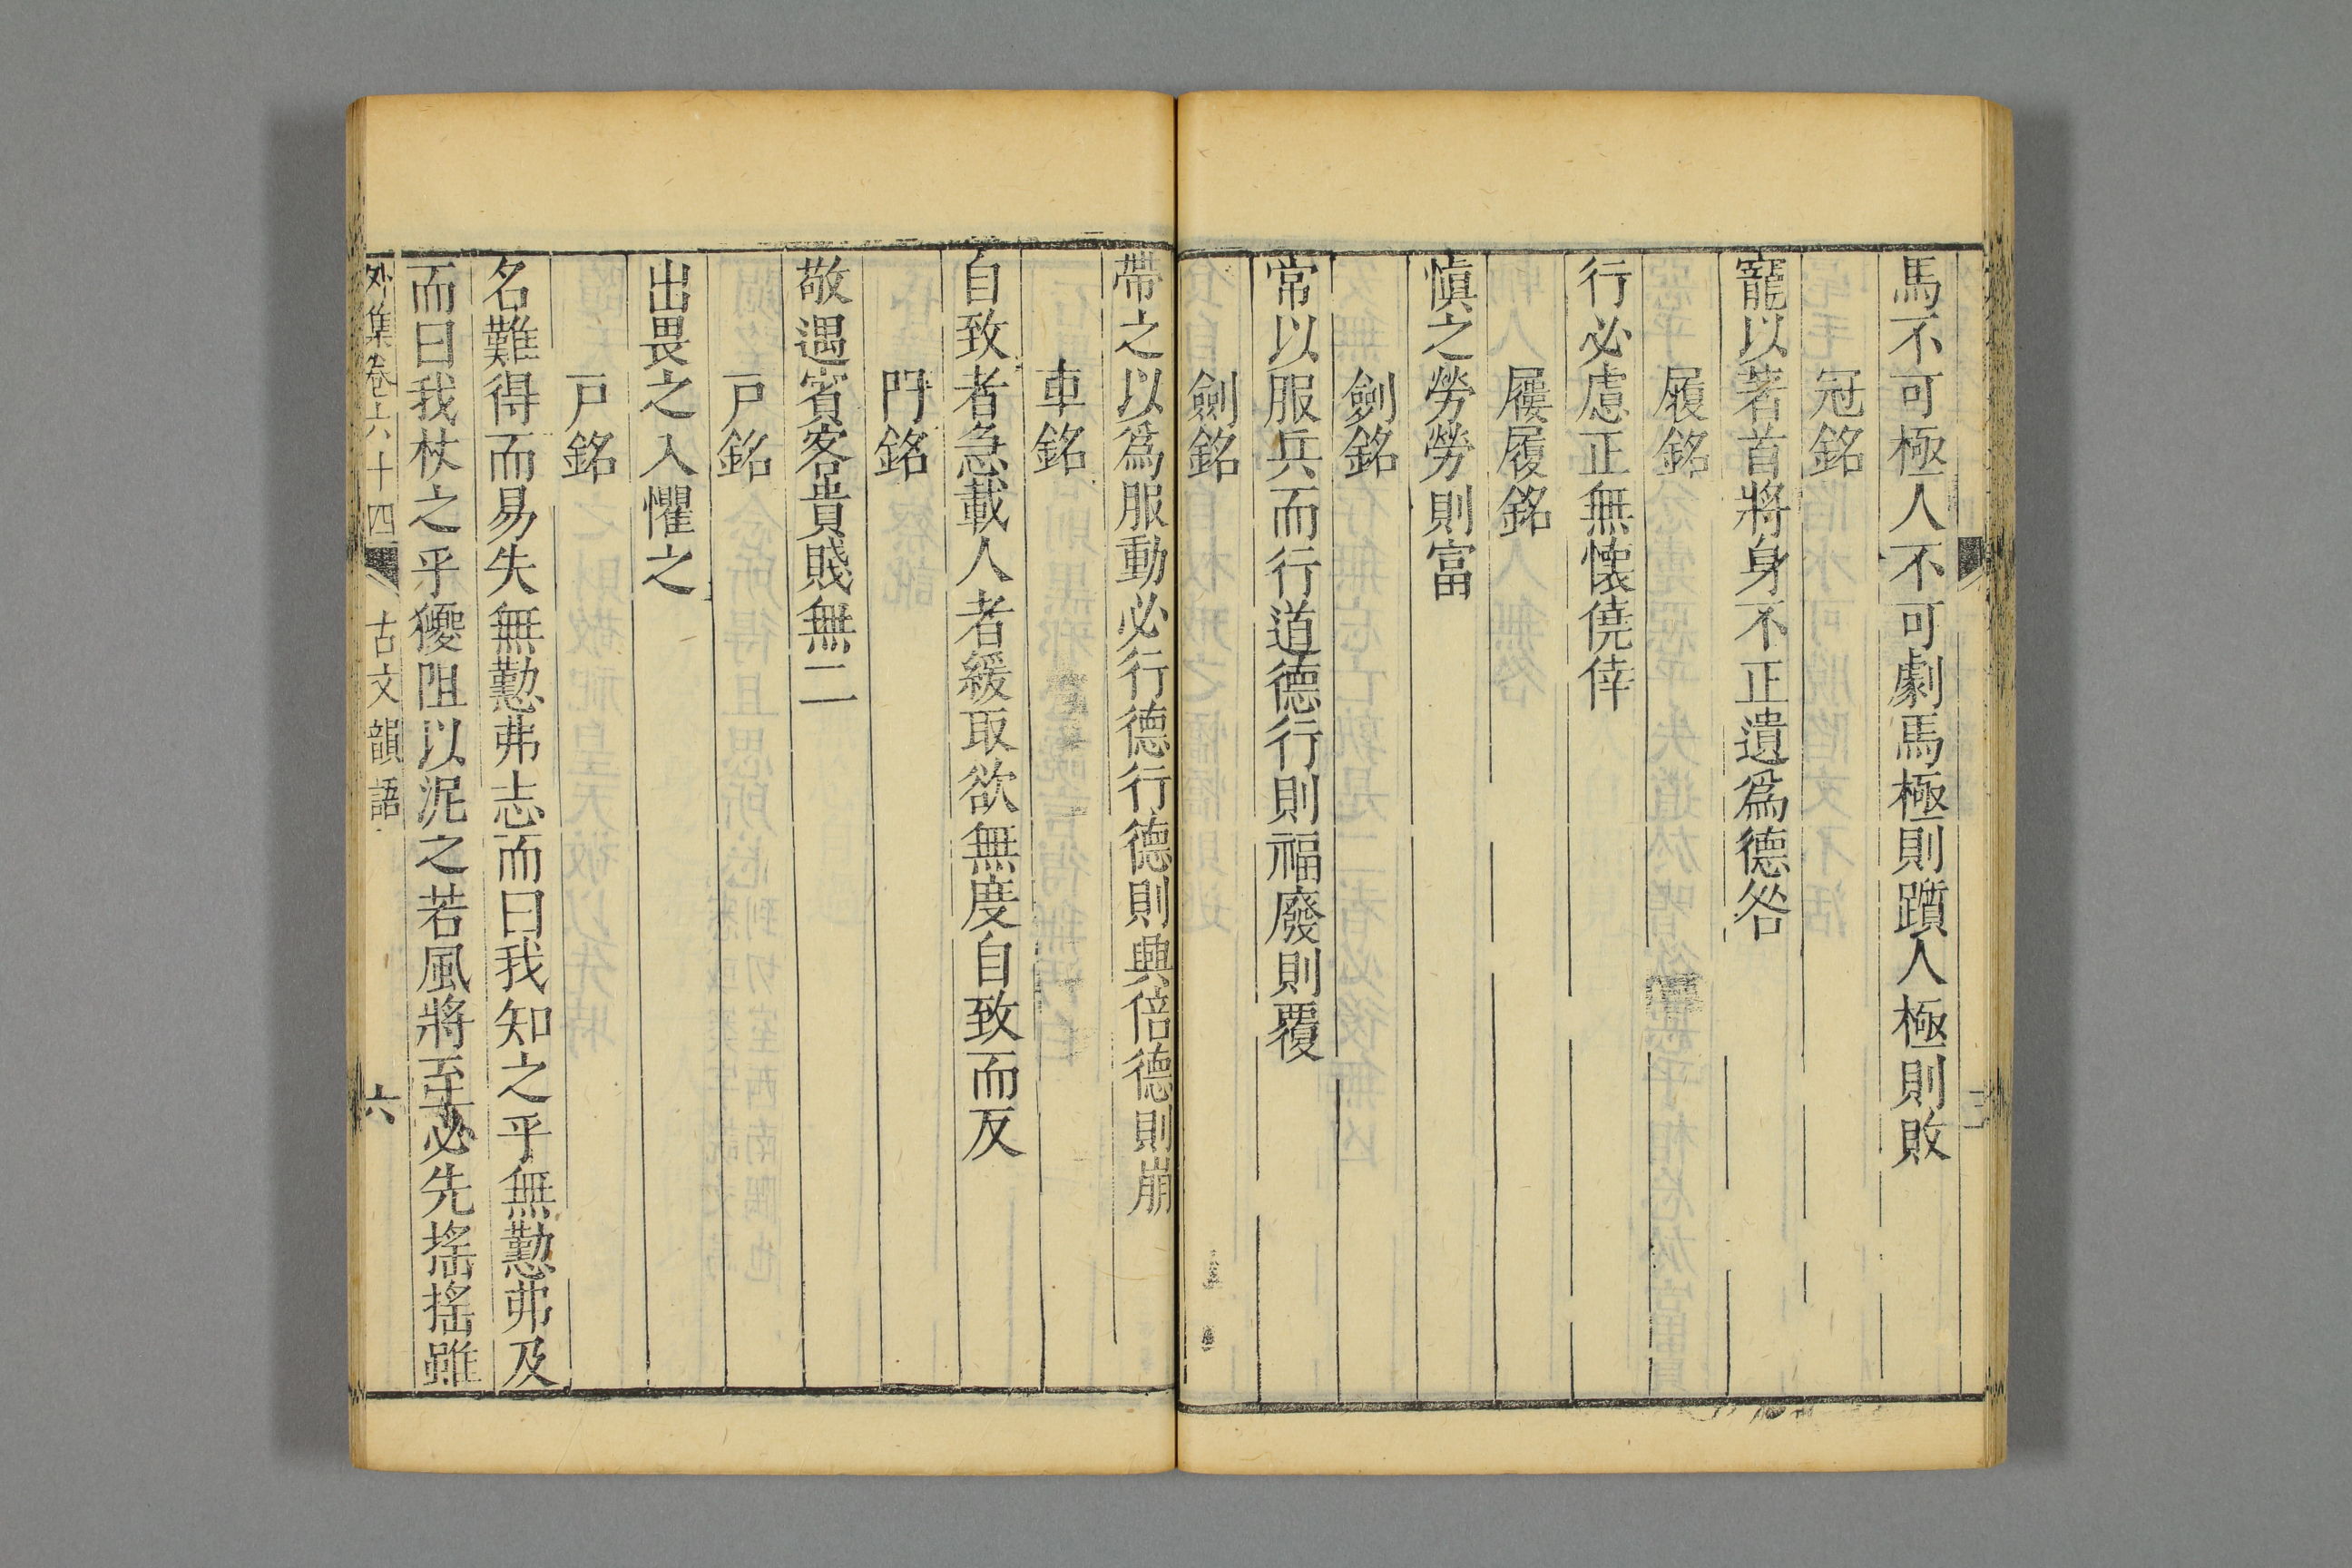 馬不可極人不可劇馬極則躓人極則敗
冠銘
寵以著首將身不正遺爲德咎
履銘
行必慮正無懷僥倖
屨履銘
愼之勞勞則富
劍銘
常以服兵而行道德行則福廢則覆
劍銘
帶之以爲服動必行德行德則興倍德則崩
車銘
自致者急載人者緩取欲無度自致而反
門銘
敬遇賓客貴賤無二
戶銘
出畏之入懼之
戶銘
名難得而易失無懃弗志而曰我知之乎無懃弗及
而曰我杖之乎擾阻以泥之若風將至必先搖搖雖
外集卷六十四
古文韻語
六